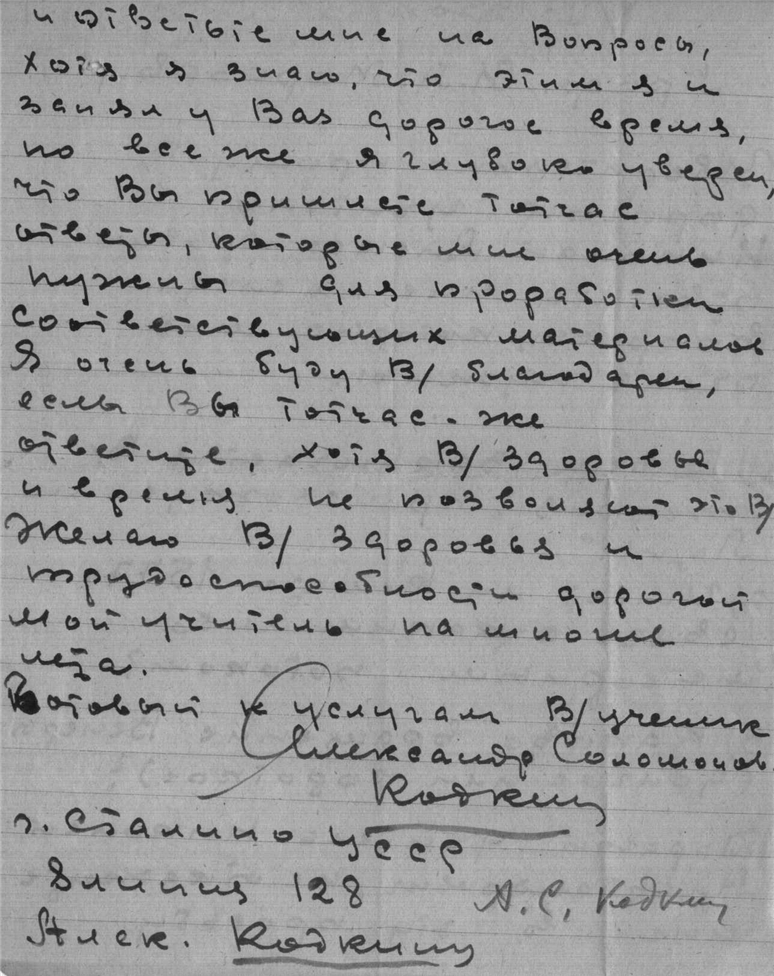 и ответьте мне на Вопросы,
хотя я знаю, что этим я и
занял у Вас дорогое время,
но все же я глубоко уверен,
что Вы пришлете тотчас
ответы, которые мне очень
нужны для проработки
соответствующих материалов
Я очень буду В/ благодарен,
если Вы тотчас-же
ответите, хотя В/ здоровье
и время не позволяют это В/
Желаю В/ здоровья и
трудоспособности дорогой
мой учитель на многие
лета.
Готовый к услугам В/ ученик
Александр Соломонов.
Кодкинд
г. Сталино УССР
8 линия 128
А. С. Кодкинд
Алек. Кодкинд